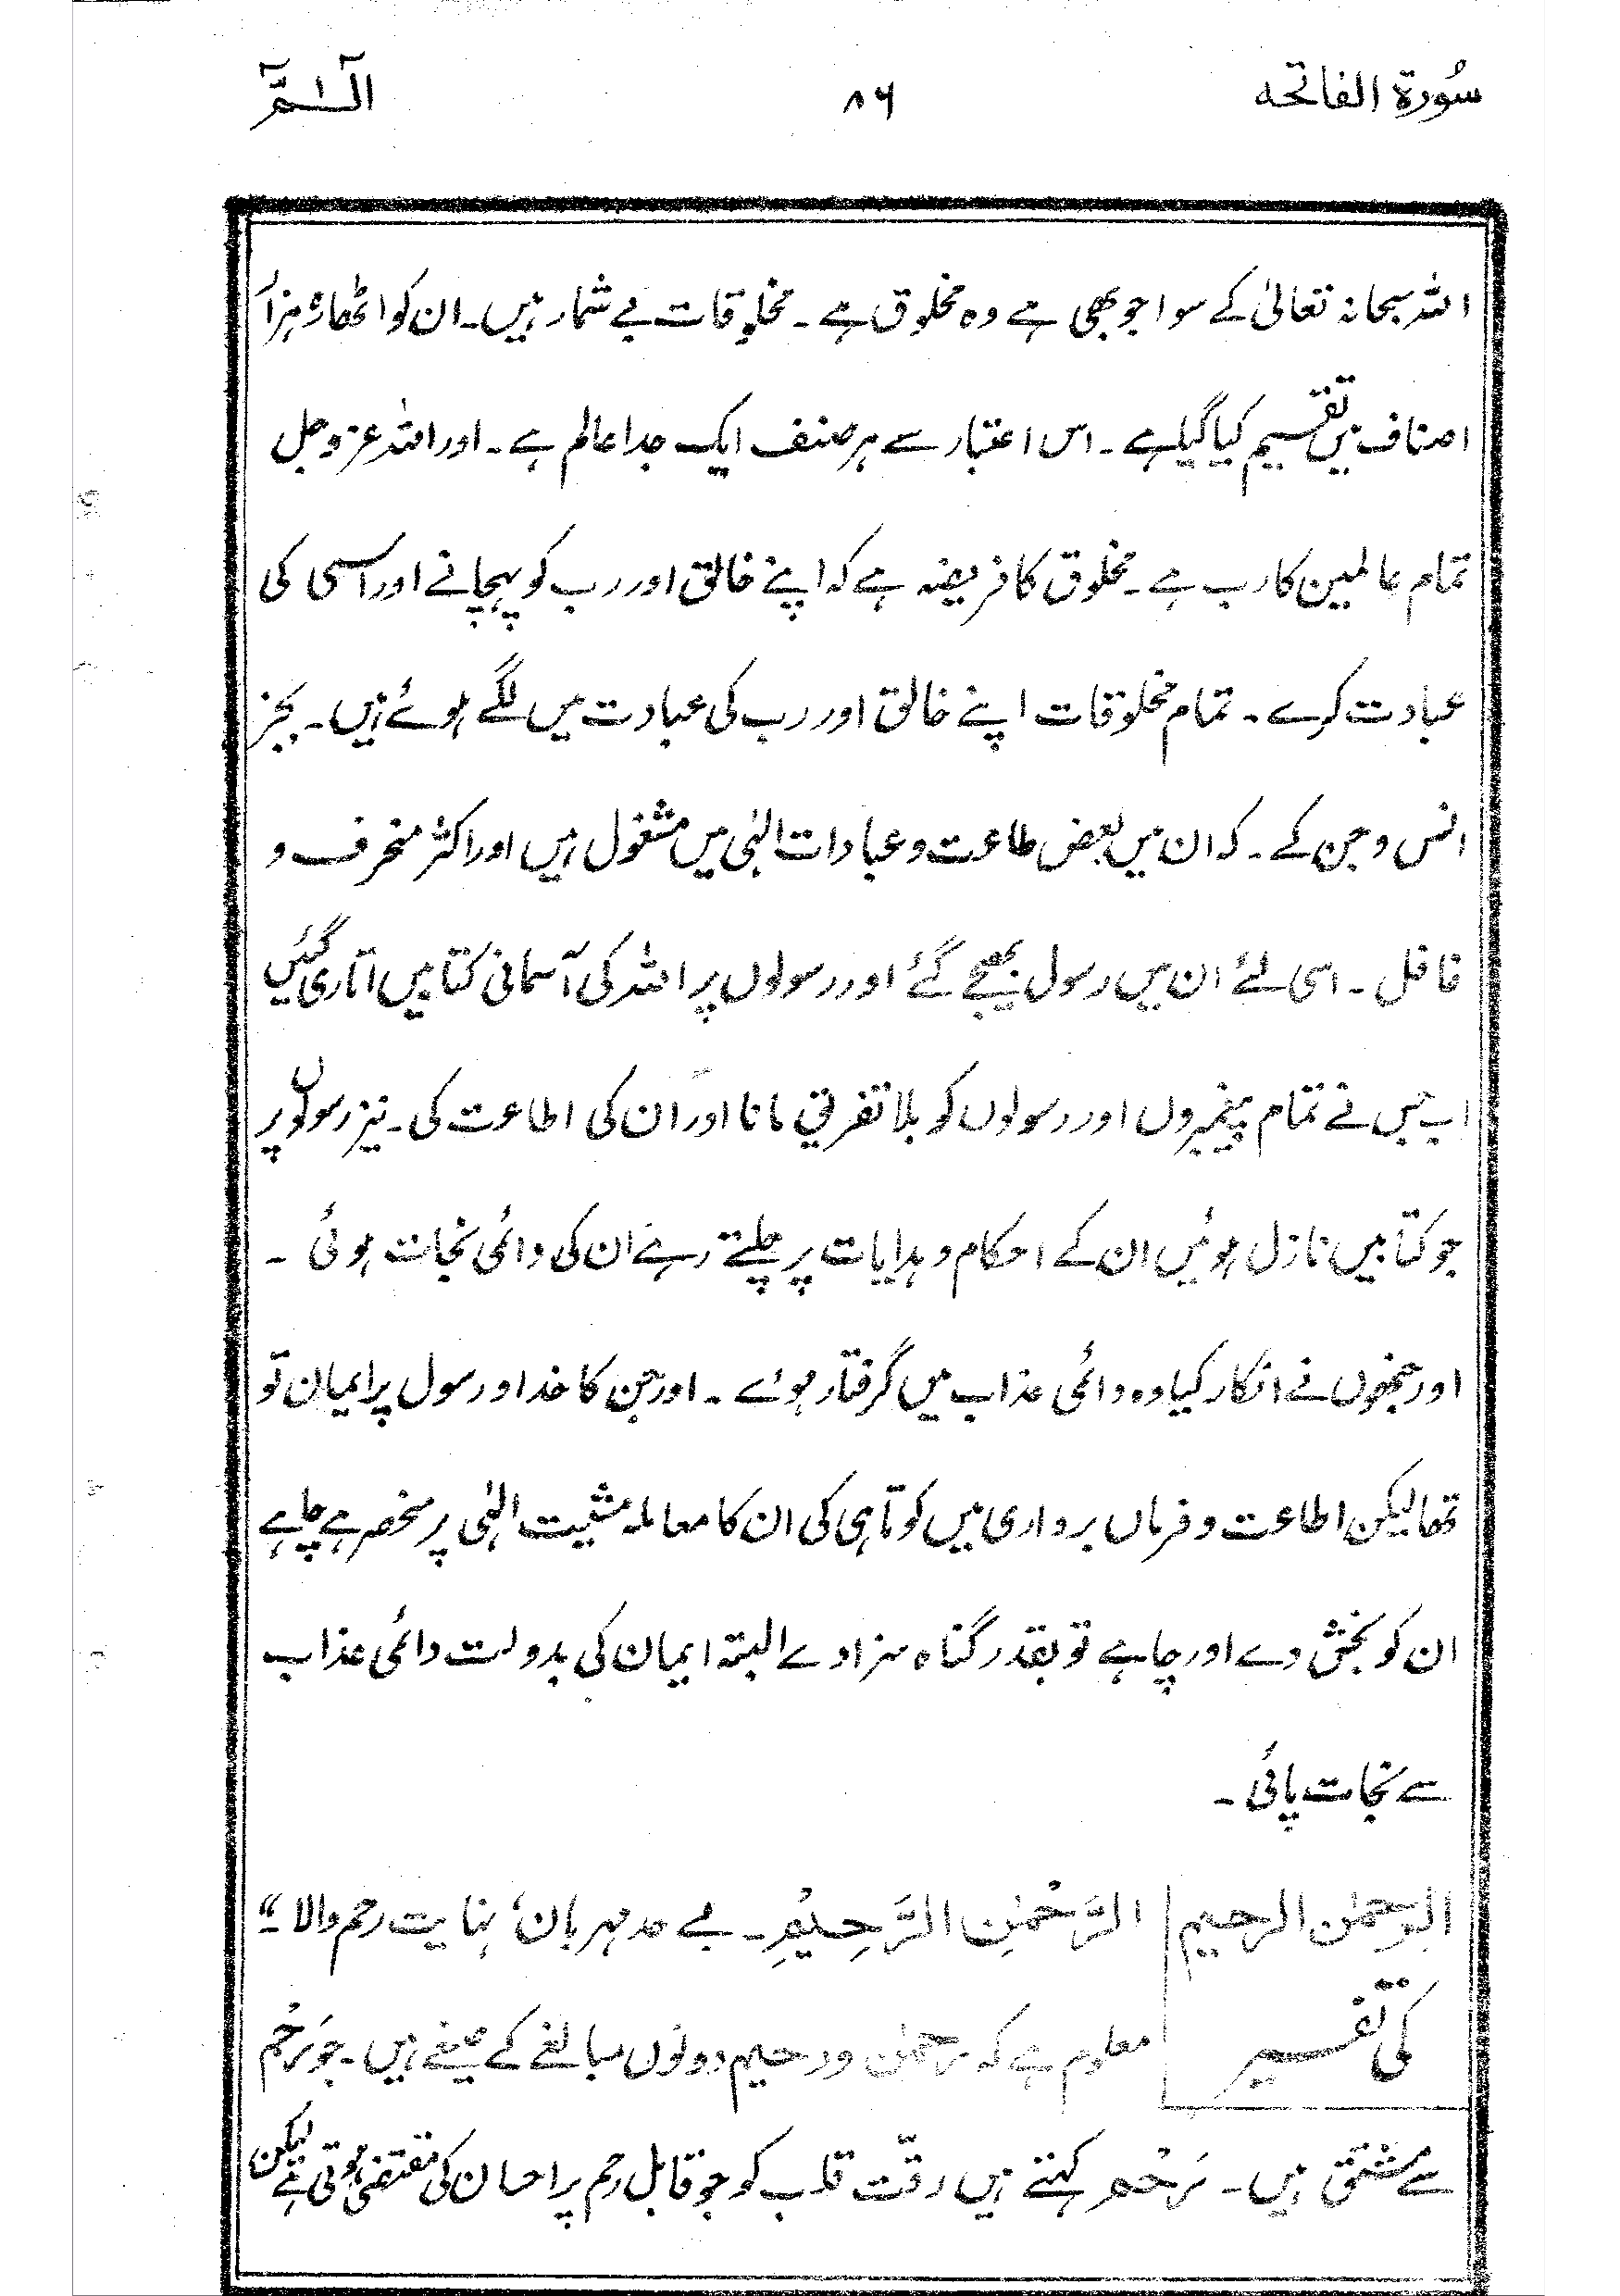 سُورۃ الفاتحہ ۸۶ الٓـمّٓ
اللہ سبحانہ تعالیٰ کے سوا جو بھی ہے وہ مخلوق ہے ۔ مخلوقات بے شمار ہیں۔ ان کو اٹھارہ ہزار
اصناف میں تقسیم کیا گیا ہے ۔ اس اعتبار سے ہر صنف ایک جدا عالم ہے ۔ اور اللہ عزوجل
تمام عالمین کا رب ہے ۔ مخلوق کا فریضہ ہے کہ اپنے خالق اور رب کو پہچانے اور اسی کی
عبادت کرے ۔ تمام مخلوقات اپنے خالق اور رب کی عبادت میں لگے ہوئے ہیں ۔ بجز
انس و جن کے ۔ کہ ان میں بعض طاعت و عبادات الہٰی میں مشغول ہیں اور اکثر منحرف و
غافل ۔ اسی لئے ان میں رسول بھیجے گئے اور رسولوں پر اللہ کی آسمانی کتابیں اتاری گئیں
اب جس نے تمام پیغمبروں اور رسولوں کو بلا تفریق مانا اور اُن کی اطاعت کی ۔ نیز رسولوں پر
جو کتابیں نازل ہوئیں ان کے احکام و ہدایات پر چلتے رہے اُن کی دائمی نجات ہوئی ۔
اور جنھوں نے انکار کیا وہ دائمی عذاب میں گرفتار ہوے ۔ اور جن کا خدا و رسول پر ایمان تو
تھا لیکن اطاعت و فرماں برداری میں کوتاہی کی ان کا معاملہ مشیت الہٰی پر منحصر ہے چاہے
ان کو بخش دے اور چاہے تو بقدر گناہ سزا دے البتہ ایمان کی بدولت دائمی عذاب
سے نجات پائی ۔
الرحمٰن الرحیم
کی تفسیر
الرَّحْمٰنِ الرَّحِیْمِ ۔ بے حد مہربان، نہایت رحم والا ۔"
معلوم ہے کہ رحمٰن و رحیم دونوں مبالغے کے صیغے ہیں ۔ جو رَحْم
سے مشتق ہیں ۔ رَحْم کہتے ہیں رقّت قلب کو جو قابل رحم پر احسان کی مقتضی ہوتی ہے لیکن